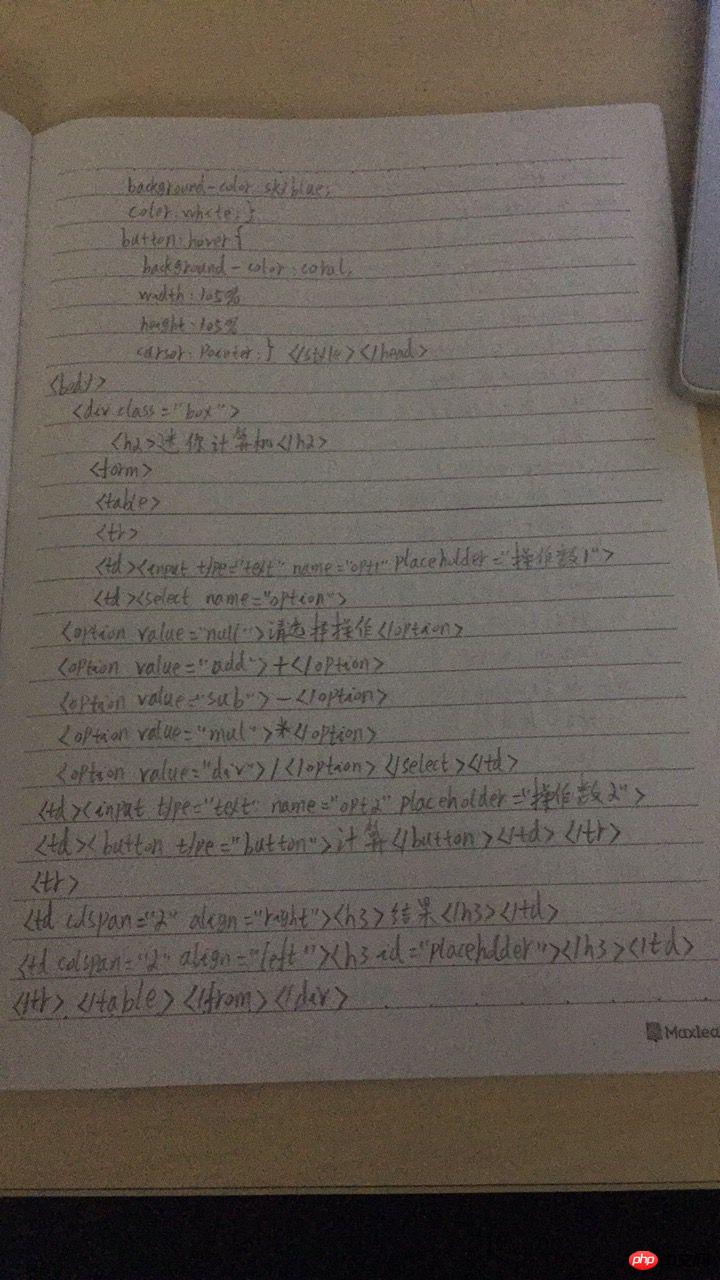 background-color: skyblue;
color: white; }
button:hover{
background-color: coral;
width: 105%
height: 105%
cursor: Pointer; } </style></head>
<body>
<div class="box">
<h2>迷你计算机</h2>
<form>
<table>
<tr>
<td><input type="text" name="opt1" placeholder="操作数1">
<td><select name="option">
<option value="null">请选择操作</option>
<option value="add">+</option>
<option value="sub">-</option>
<option value="mul">*</option>
<option value="div">/</option></select></td>
<td><input type="text" name="opt2" placeholder="操作数2">
<td><button type="button">计算</button></td></tr>
<tr>
<td colspan="2" align="right"><h3>结果</h3></td>
<td colspan="2" align="left"><h3 id="placeholder"></h3></td>
</tr></table></from></div>
Maxlea
php